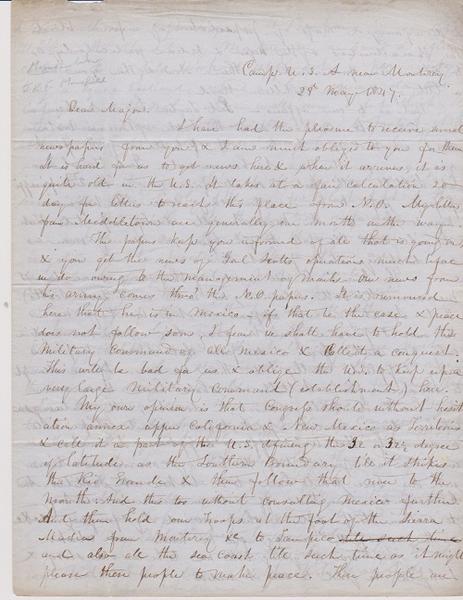 Camp U.S. A near Monterey
29th May 1847.
Dear Major.
I have had the pleasure to receive several
newspapers from you & I am much obliged to you for them
It is hard for us to get news here & when it arrives, it is
quite old in the U.S. It takes at a fair calculation 20
days for letters to reach this place from N.O. My letters
from Middletown are generally one month on the way.
The papers keep you informed of all that is going on
& you get the news of Genl Scotts operations much before
we do owing to the management of mails. Our news from
his army comes thro' the N.O. papers. It is rumoured
here that he is in Mexico - if that be the case & peace
does not follow soon, I fear we shall have to hold the
Military command of all Mexico & call it a conquest.
This will be bad for us & oblige the U.S. to keep up a
very large Military command (establishment) here.
My own opinion is that Congress should without hesit
ation annex upper California & New Mexico as Territories
& call it a part of the U.S. defining the 32 degree
of latitude as the Southern Boundary till it strikes
the Rio Grande & then follow that river to the
mouth. And this too without consulting Mexico further
And then hold our troops at the foot of the Sierra
Madre from Monterey &c to Tampico till such time
and also all the sea coast till such time as it might
please these people to make peace. These people are